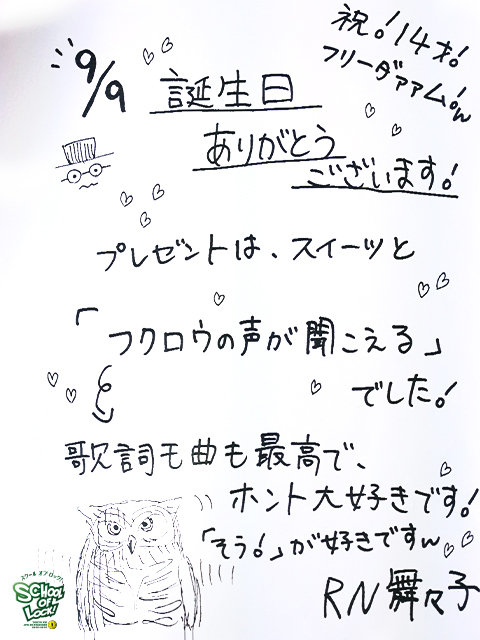 祝！14才！
フリーダァァム！w
9/9
誕生日
ありがとう
ございます！
プレゼントは、スイーツと
「フクロウの声が聞こえる」
でした！
歌詞も曲も最高で、
ホント大好きです！
「そう！」が好きですw
RN舞々子
スクール オブ ロック!
SCHOOL
OF
LOCK!